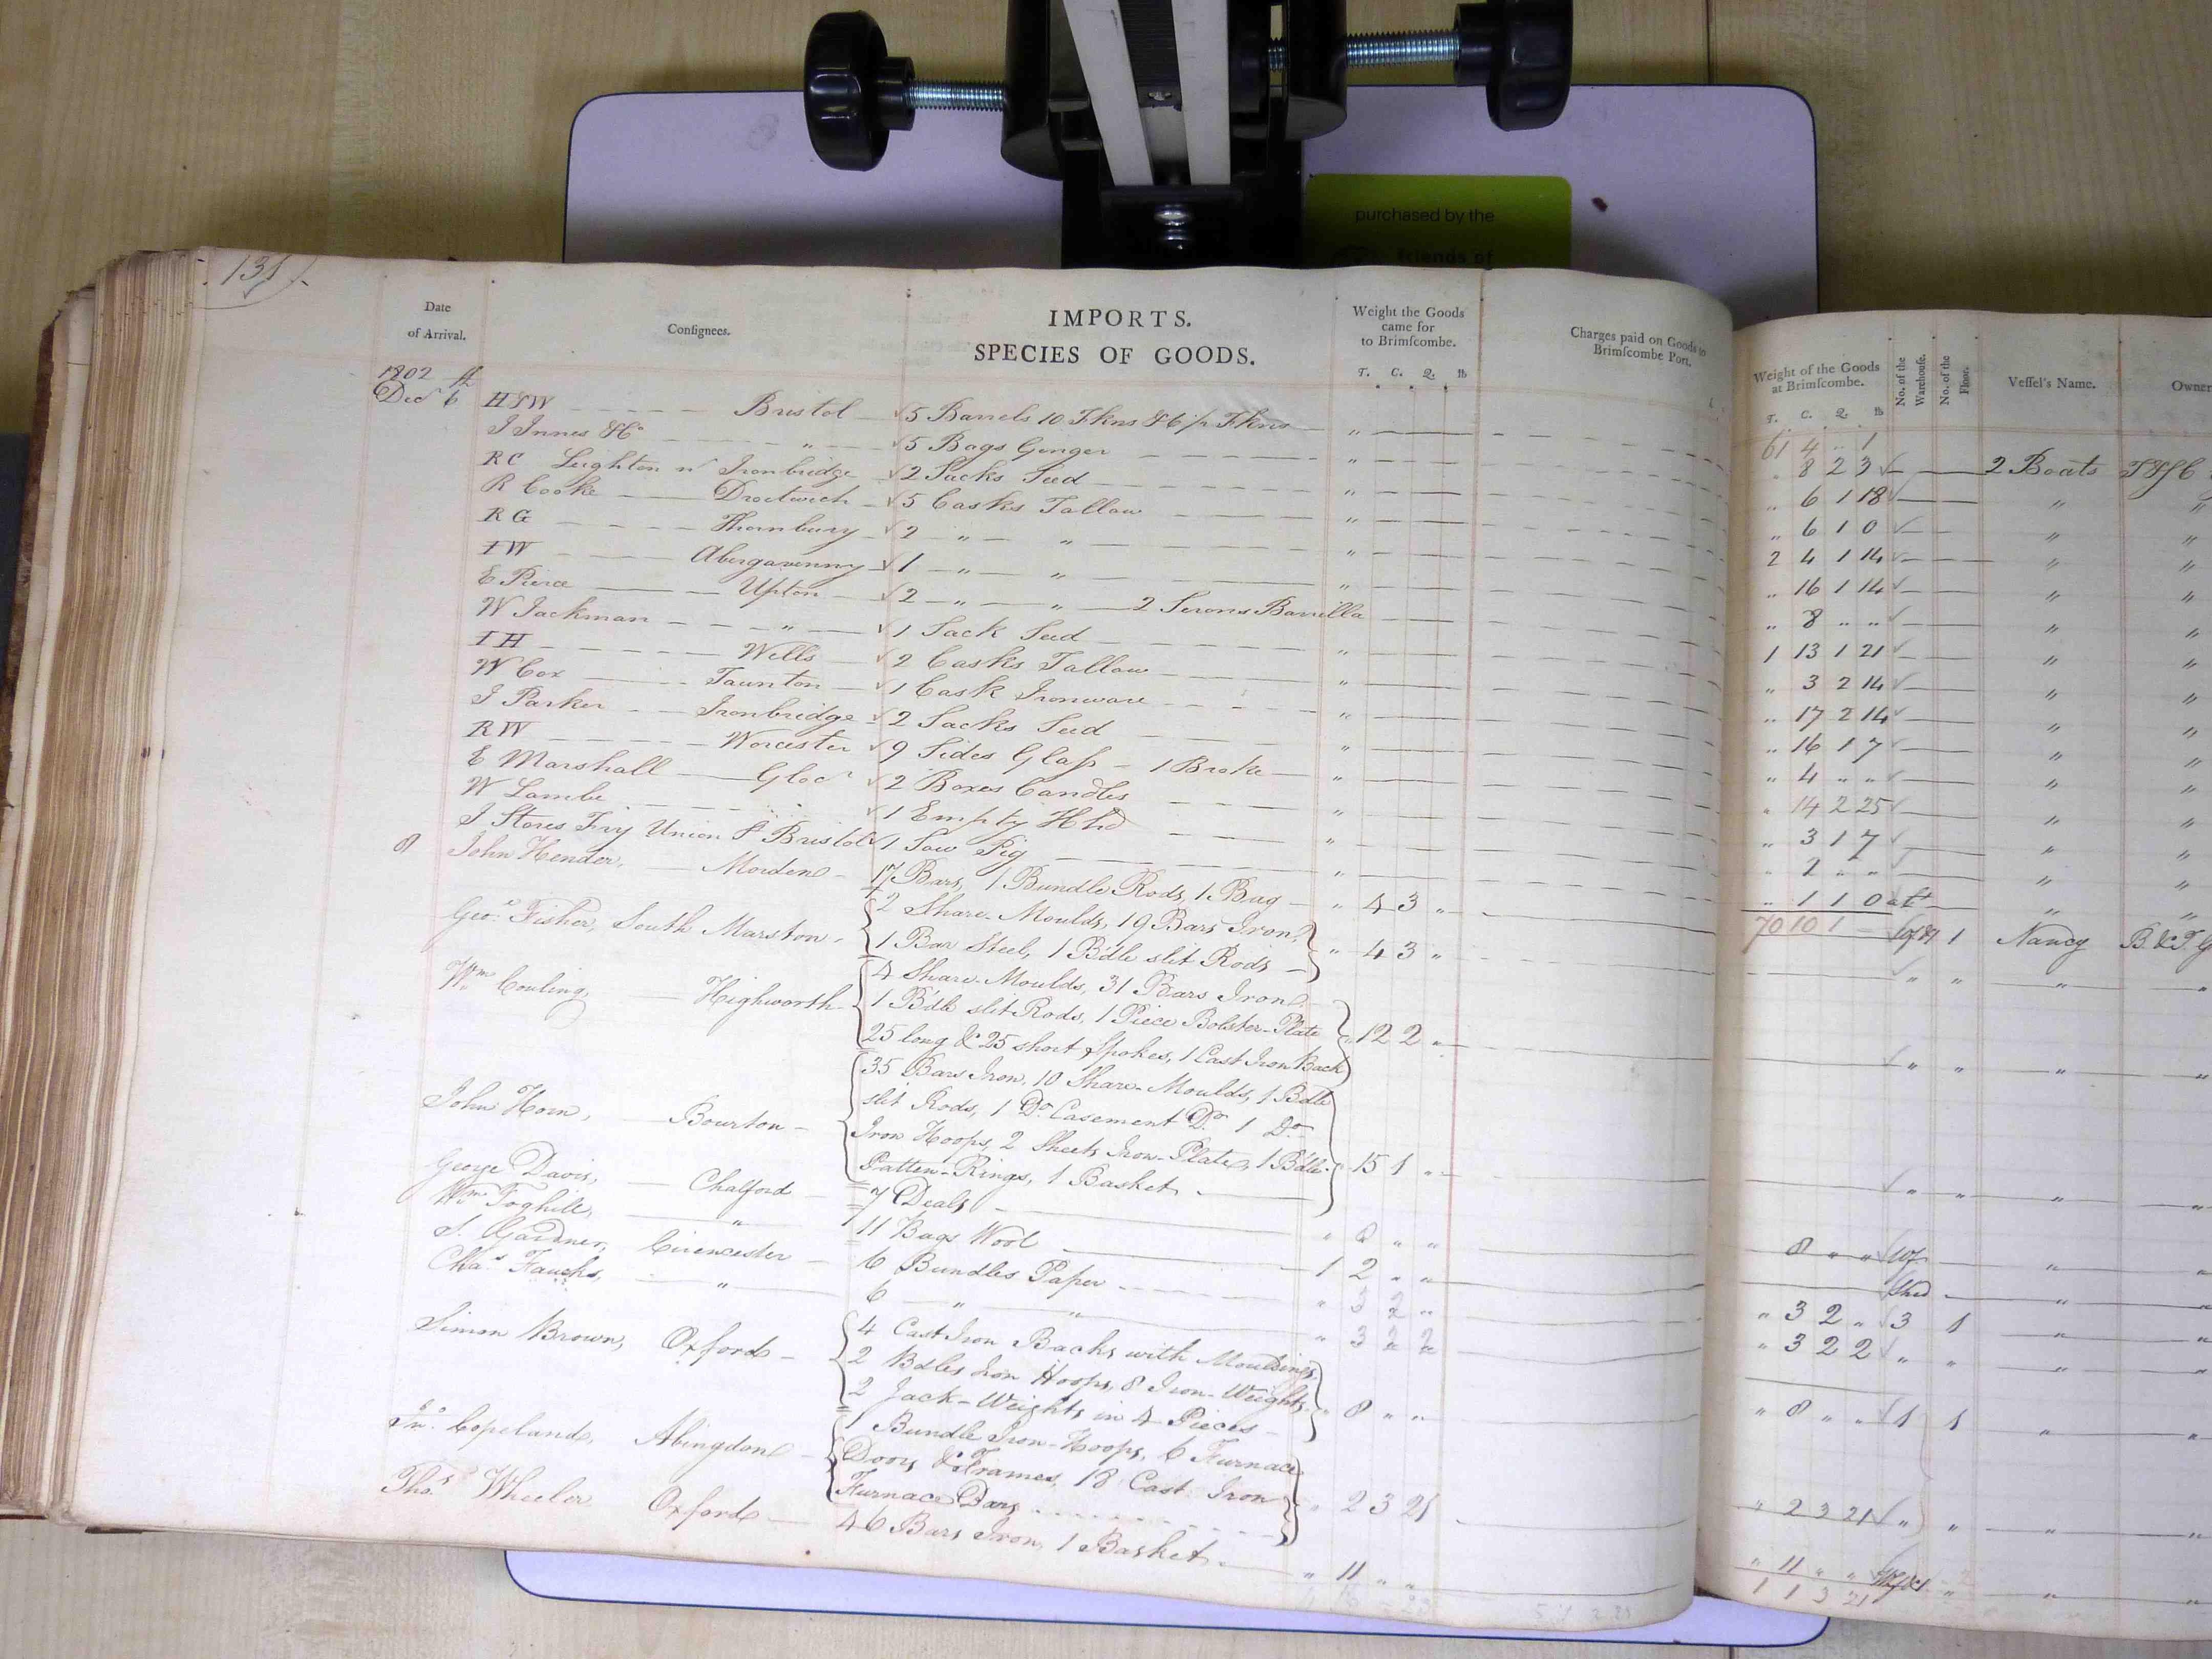 purchased by the
Friends of
131
Date
of Arrival.
Consignees.
IMPORTS.
SPECIES OF GOODS.
Weight the Goods
came for
to Brimscombe.
T. C. Q. lb
Charges paid on Goods to
Brimscombe Port.
Weight of the Goods
at Brimscombe.
T. C. Q. lb
No. of the
Warehouse.
No. of the
Floor.
Vessel's Name.
Owner
1802
61 4 " 1
Decr 6th H&W Bristol 5 Barrels 10 Fkns & 6 Fkns " 8 2 3 2 Boats
J Innes & Co " 5 Bags Ginger " 6 1 18 "
RC Leighton nr Ironbridge 2 Sacks Seed " 6 1 0 "
R Cooke Droitwich 5 Casks Tallow 2 4 1 14 "
RG Thornbury 2 " " " 16 1 14 "
IW Abergavenny 1 " " " 8 " " "
E Pierce Upton 2 " " 2 Serons Barrilla 1 13 1 21 "
W Jackman " 1 Sack Seed " 3 2 14 "
IH Wells 2 Casks Tallow " 17 2 14 "
W Cox Taunton 1 Cask Ironware " 16 1 7 "
J Parker Ironbridge 2 Sacks Seed " 4 " " "
RW Worcester 9 Sides Glass - 1 Broke " 14 2 25 "
E Marshall Glocr 2 Boxes Candles " 3 1 7 "
W Lambe 1 Empty Hhd " 2 " " "
J Stores Fry Union St Bristol 1 Sow Pig " 1 1 0 "
70 10 1
8 John Hender, Morden 17 Bars, 1 Bundle Rods, 1 Bag " 4 3 " 1 Nancy
Geo. Fisher, South Marston 2 Share-Moulds, 19 Bars Iron,
1 Bar Steel, 1 Bdle slit Rods " 4 3 " " " "
Wm Couling, Highworth 4 Share-Moulds, 31 Bars Iron,
1 Bdle slit Rods, 1 Piece Bolster-Plate
25 long & 25 short Spokes, 1 Cast Iron Back " 12 2 " " " "
John Horn, Bourton 35 Bars Iron, 10 Share-Moulds, 1 Bdle
slit Rods, 1 Do Casement Do 1 Do
Iron Hoops, 2 Sheets Iron-Plate, 1 Bdle
Patten-Rings, 1 Basket " 15 1 " " " "
George Davis, Chalford 7 Deals " 8 " " 8 " " Wf "
Wm Foghill, " 11 Bags Wool 1 2 " " Shed "
S. Gardner, Cirencester 6 Bundles Paper " 3 2 " " 3 2 " 3 1 "
Chas " 6 " " " 3 2 2 " 3 2 2 " " "
Simon Brown, Oxford 4 Cast Iron Backs with Mouldings,
2 Bdles Iron Hoops, 8 Iron-Weights,
2 Jack-Weights in 4 Pieces " 8 " " " 8 " " 1 1 "
Jno. Copeland, Abingdon 1 Bundle Iron-Hoops, 6 Furnace
Doors & Frames, 18 Cast Iron
Furnace Bars " 2 3 21 " 2 3 21 " " "
Thos. Wheeler Oxford 46 Bars Iron, 1 Basket " 11 " " " 11 " " "
1 1 3 21